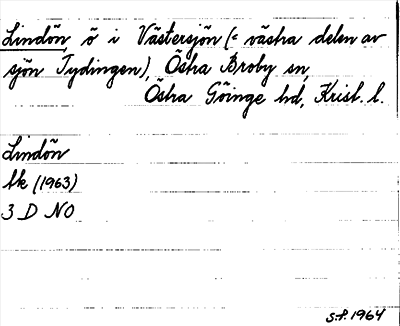 Lindön, ö i Västersjön (= västra delen av
sjön Tydingen), Östra Broby sn,
Östra Göinge hd, Krist. l.
Lindön
Ek (1963)
3 D NO
S.F. 1964